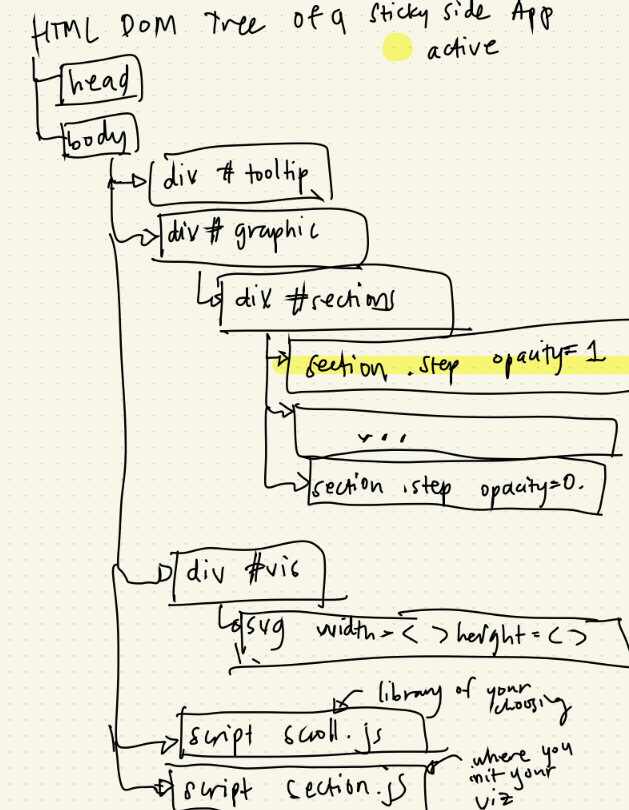 HTML DOM Tree of a Sticky side App
active
head
body
div # tooltip
div # graphic
div # sections
section .step opacity= 1
...
section .step opacity=0.
div #vis
svg width = < > height = < >
library of your
choosing
script scroll.js
where you
init your
viz
script section.js